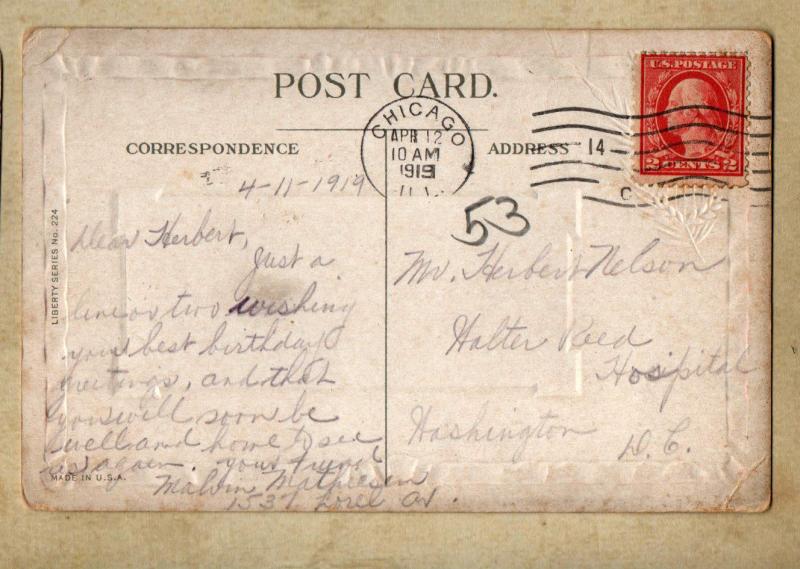 POST CARD.
CHICAGO
APR 12
10 AM
1919
ILL.
14
U.S. POSTAGE
2 CENTS 2
CORRESPONDENCE
ADDRESS
4-11-1919
53
Dear Herbert,
Just a
line or two wishing
you best birthday
greetings, and that
you will soon be
well and home to see
us again. Your friend
Malvin Mathiesen
1537 Lorel Av.
Mr. Herbert Nelson
Walter Reed
Hospital
Washington
D.C.
LIBERTY SERIES No. 224
MADE IN U.S.A.